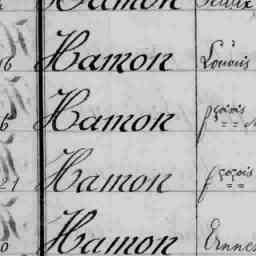 Hamon
6 Hamon Louis
6 Hamon fçois
21 Hamon fçois
0 Hamon Ernes